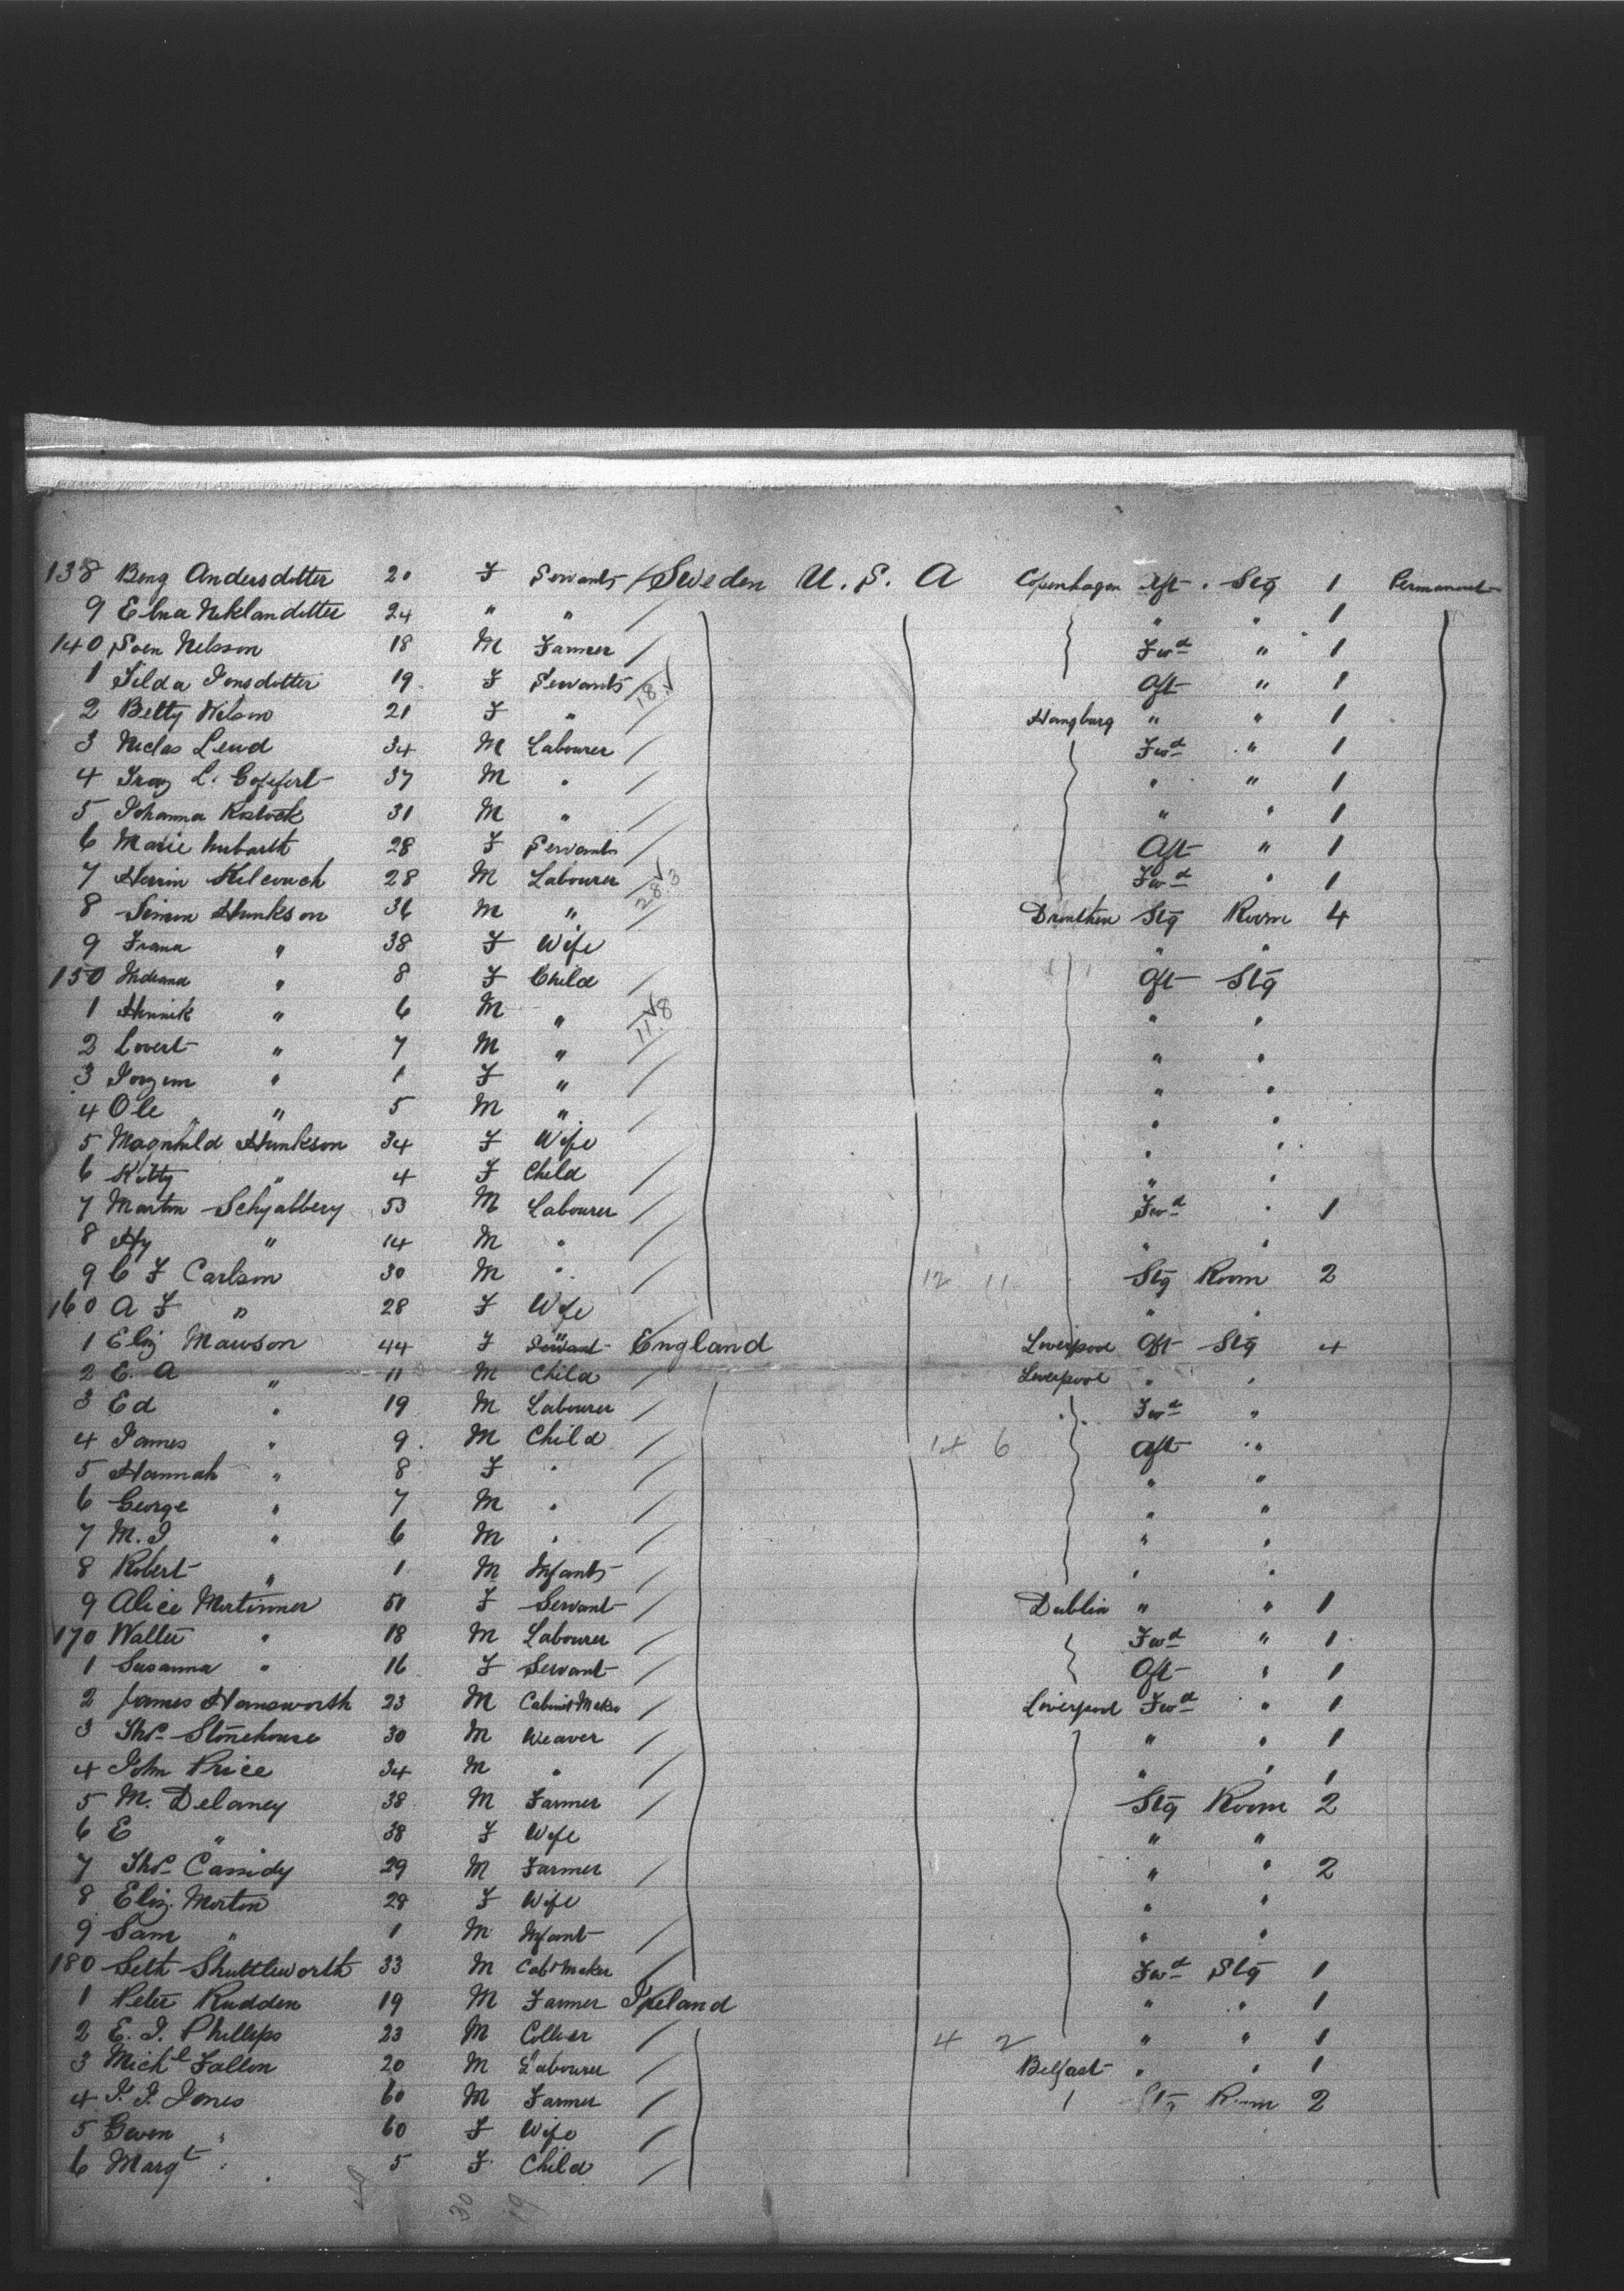 138 Beng Andersdotter 20 F Servants Sweden U. S. A Copenhagen Aft . Stg 1 Permanent
9 Elna Niklandotter 24 " " " " 1
140 Sven Nelsson 18 M Farmer Fwd " 1
1 Silda Jonsdotter 19 F Servants 18 Aft " 1
2 Betty Wilson 21 F " Hamburg " " 1
3 Niclas Leud 34 M Labourer Fwd " 1
4 L. 37 M " " " 1
5 Johanna Rostock 31 M " " " 1
6 Marie 28 F Servants Aft " 1
7 28 M Labourer 28.3 Fwd " 1
8 Simon Hunkson 36 M " Dronthen Stg Room 4
9 Frana " 38 F Wife " "
150 " 8 F Child Aft Stg
1 Hinnik " 6 M " 11.8 " "
2 Covert " 7 M " " "
3 " 1 F " " "
4 Ole " 5 M " " "
5 Magnhild Hunkson 34 F Wife " "
6 Kitty " 4 F Child " "
7 Martin Schyalbery 53 M Labourer Fwd " 1
8 Hy " 14 M " " "
9 C F Carlson 30 M " 12 11 Stg Room 2
160 A F " 28 F Wife " "
1 Eliz Mawson 44 F Servant England Liverpool Aft Stg 4
2 E. A " 11 M Child Liverpool " "
3 Ed " 19 M Labourer Fwd "
4 James " 9 M Child 14 6 Aft "
5 Hannah " 8 F " " "
6 George " 7 M " " "
7 M. J " 6 M " " "
8 Robert " 1 M Infants " "
9 Alice Mortimer 51 F Servant Dublin " " 1
170 Walter " 18 M Labourer Fwd " 1
1 Susanna " 16 F Servant Aft " 1
2 James Hamsworth 23 M Cabinet Maker Liverpool Fwd " 1
3 Thos Stonehouse 30 M Weaver " " 1
4 John Price 34 M " " " 1
5 M. Delaney 38 M Farmer Stg Room 2
6 E " 38 F Wife " "
7 Thos Cassidy 29 M Farmer " " 2
8 Eliz. Morton 28 F Wife " "
9 Sam " 1 M Infant " "
180 Seth Shuttleworth 33 M Cabt Maker Fwd Stg 1
1 Peter Rudden 19 M Farmer Ireland " " 1
2 E. J. Phillips 23 M Collier 4 2 " " 1
3 Michl Fallon 20 M Labourer Belfast " " 1
4 J. J. Jones 60 M Farmer Stg Room 2
5 Gwen " 60 F Wife
6 Margt " 5 F Child
49 30 19